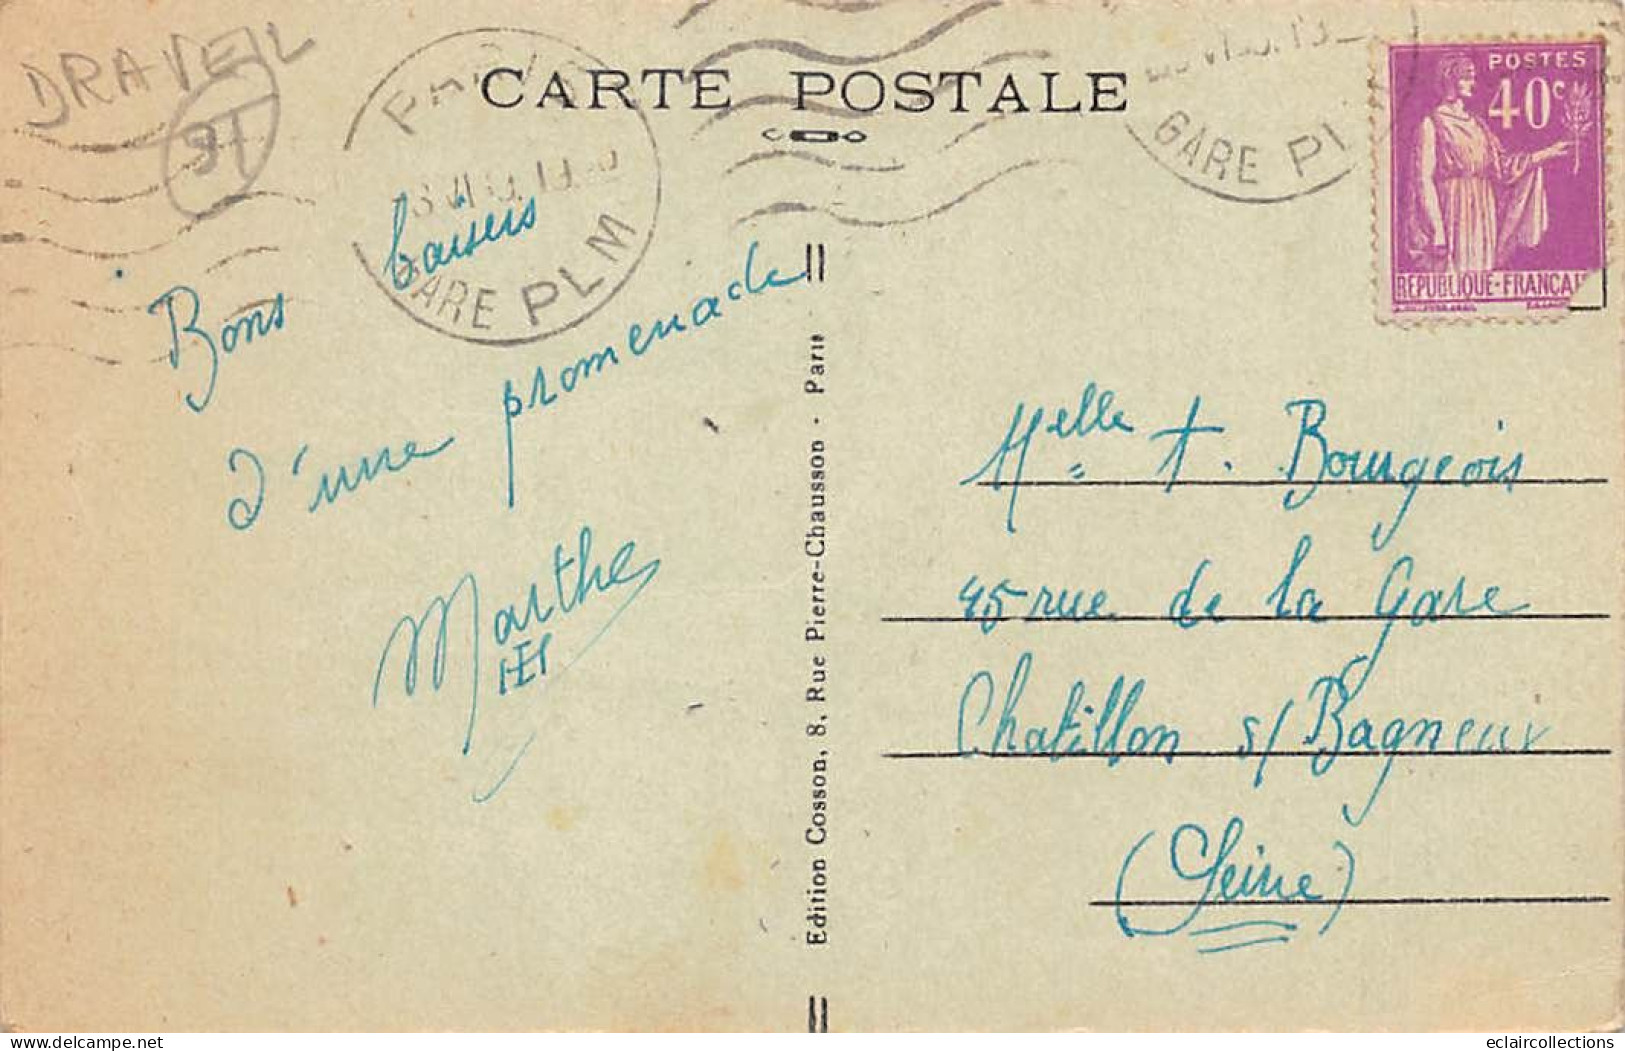 DRAVEIL
91
CARTE POSTALE
GARE PLM
GARE PL
POSTES
40c
REPUBLIQUE-FRANÇAI
Bons baisers
d'une promenade
Marthe
Edition Cosson, 8, Rue Pierre-Chausson - Paris
Melle T. Bourgeois
45 rue de la Gare
Chatillon s/ Bagneux
(Seine)
eclaircollections